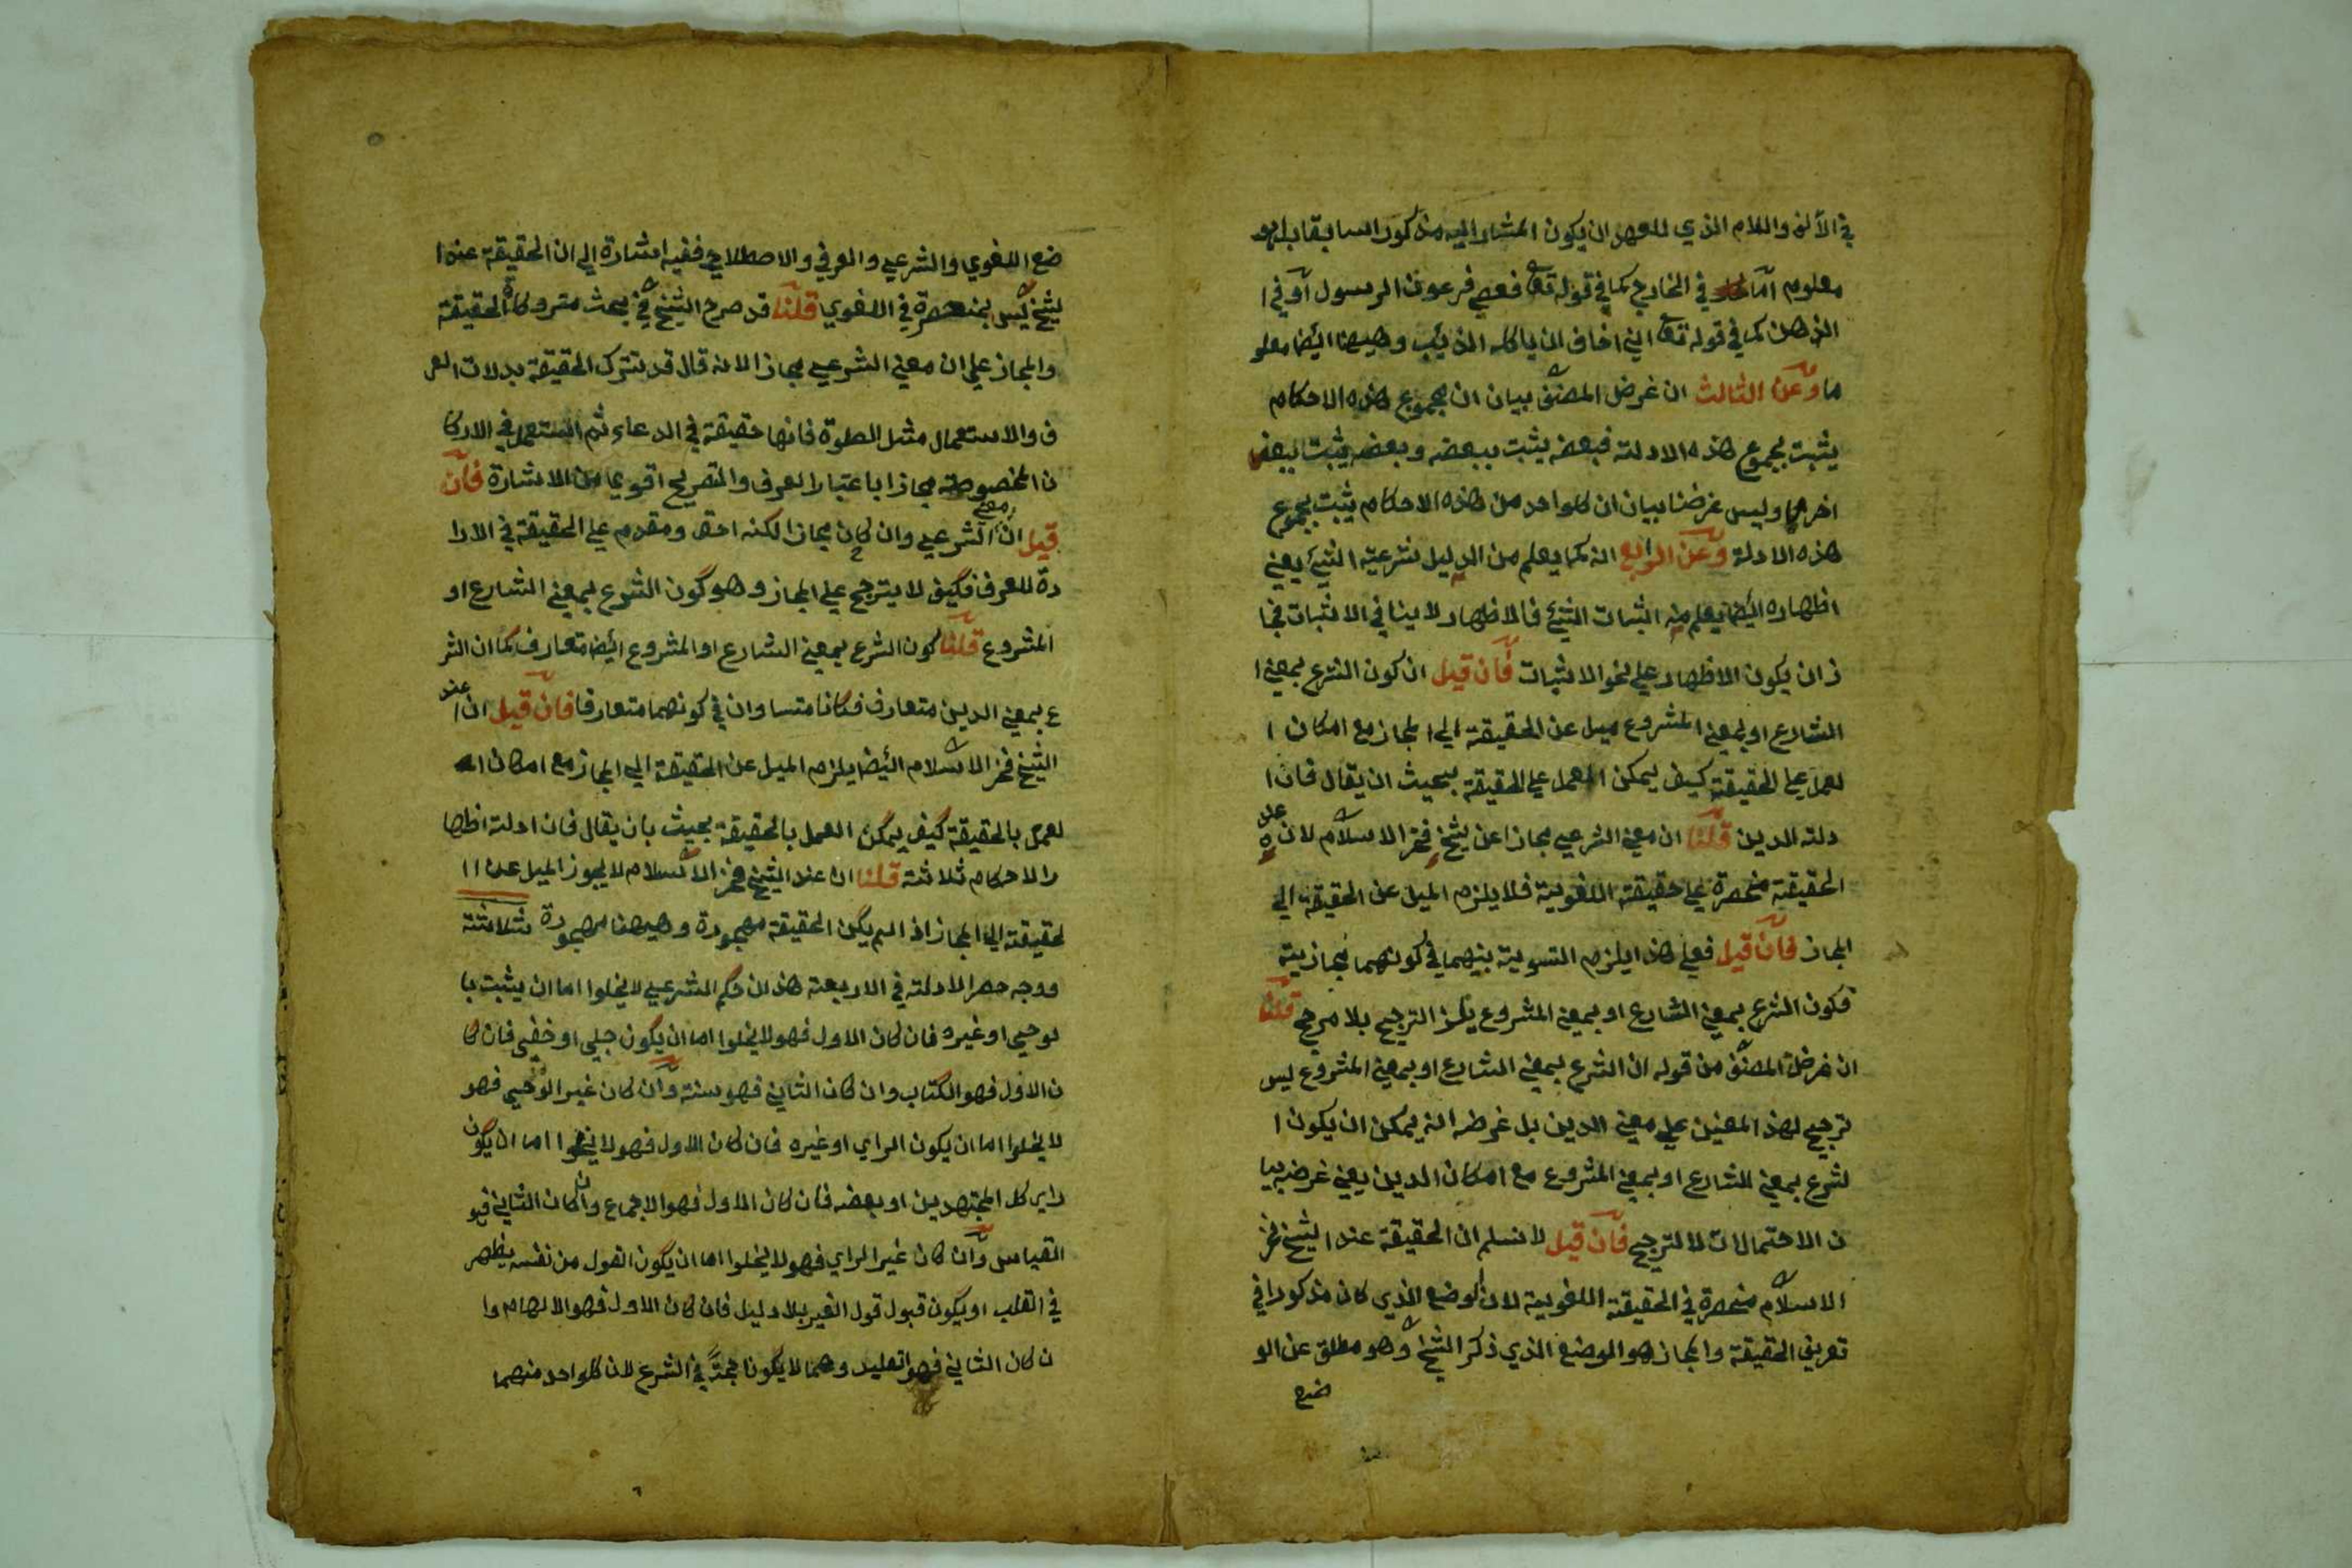 في الألف واللام الذي للعهد ان يكون المشار اليه مذكورا سابقا بل هو
معلوم اما في الخارج كما في قوله تعا فعصي فرعون الرسول أو في ا
لذهن كما في قوله تعا اني اخاف ان ياكله الذئب وهيهنا ايضا معلو
ما وعن الثالث ان غرض المصنف بيان ان مجموع هذه الاحكام
يثبت بمجموع هذه الادلة فبعضه يثبت ببعضه وبعضه يثبت ببعض
اخر وليس غرضنا بيان ان كلواحد من هذه الاحكام يثبت بمجموع
هذه الادلة وعن الرابع انه كما يعلم من الدليل شرعية الشئ يعني
اظهاره ايضا يعلم منه اثبات الشئ فالاظهار لا ينافي الاثبات فجا
ز ان يكون الاظهار علي نحو الاثبات فان قيل ان كون الشرع بمعني ا
لشارع او بمعني المشروع ميل عن الحقيقة الي المجاز مع امكان ا
لعمل علي الحقيقة كيف يمكن العمل علي الحقيقة بحيث ان يقال فان ا
دلة الدين قلنا ان معني الشرعي مجازا عن شيخ فخر الاسلام لان عنده
الحقيقة منحصرة علي حقيقة اللغوية فلا يلزم الميل عن الحقيقة الي
المجاز فان قيل فعلي هذا يلزم التسوية بينهما في كونهما مجازية
فكون الشرع بمعني الشارع او بمعني المشروع يلزم الترجيح بلا مرجح قلنا
ان غرض المصنف من قوله ان الشرع بمعني الشارع او بمعني المشروع ليس
ترجيح لهذا المعنين علي معني الدين بل غرضه انه يمكن ان يكون ا
لشرع بمعني الشارع او بمعني المشروع مع امكان الدين يعني غرضه بيا
ن الاحتمالات لا الترجيح فان قيل لا نسلم ان الحقيقة عند الشيخ فخر
الاسلام منحصرة في الحقيقة اللغوية لان الوضع الذي كان مذكورا في
تعريف الحقيقة والمجاز هو الوضع الذي ذكر الشيخ وهو مطلق عن الو
ضع اللغوي والشرعي والعرفي والاصطلاحي ففيه اشارة الي ان الحقيقة عند ا
لشيخ ليس بمنحصرة في اللغوي قلنا قد صرح الشيخ في بحث متروكاة الحقيقة
والمجاز علي ان معني الشرعي مجازا لانه قال قد تترك الحقيقة بدلات العر
ف والاستعمال مثل الصلوة فانها حقيقة في الدعاء ثم استعمل في الاركا
ن المخصوصة مجازا باعتبار العرف والتصريح اقوي من الاشارة فان
قيل ان معني الشرعي وان كان مجازا لكنه احق ومقدم علي الحقيقة في الارا
دة للعرف فكيف لا يترجح علي المجاز وهو كون الشرع بمعني الشارع او
المشروع قلنا كون الشرع بمعني الشارع او المشروع ايضا متعارف كما ان الشر
ع بمعني الدين متعارف فكانا متساوان في كونهما متعارفا فان قيل ان عند
الشيخ فخر الاسلام ايضا يلزم الميل عن الحقيقة الي المجاز مع امكان ا
لعمل بالحقيقة كيف يمكن العمل بالحقيقة بحيث بان يقال فان ادلة اظها
ر الاحكام ثلاثة قلنا ان عند الشيخ فخر الاسلام لا يجوز الميل عن ا ا
لحقيقة الي المجاز اذا لم يكن الحقيقة مهجورة وهيهنا مهجورة بثلاثة
ووجه حصر الادلة في الاربعة هذا ان حكم الشرعي لا يخلوا اما ان يثبت با
لوحي او غيره فان كان الاول فهو لا يخلوا اما ان يكون جلي او خفي فان كا
ن الاول فهو الكتاب وان كان الثاني فهو سنة وان كان غير الوحي فهو
لا يخلوا اما ان يكون الراي او غيره فان كان الاول فهو لا يخلوا اما ان يكون
راي كل المجتهدين او بعضه فان كان الاول فهو الاجماع وان كان الثاني فهو
القياس وان كان غير الراي فهو لا يخلوا اما ان يكون القول من نفسه يظهر
في القلب او يكون قبول قول الغير بلا دليل فان كان الاول فهو الالهام وا
ن كان الثاني فهو تقليد وهما لا يكونا حجة في الشرع لان كلواحد منهما